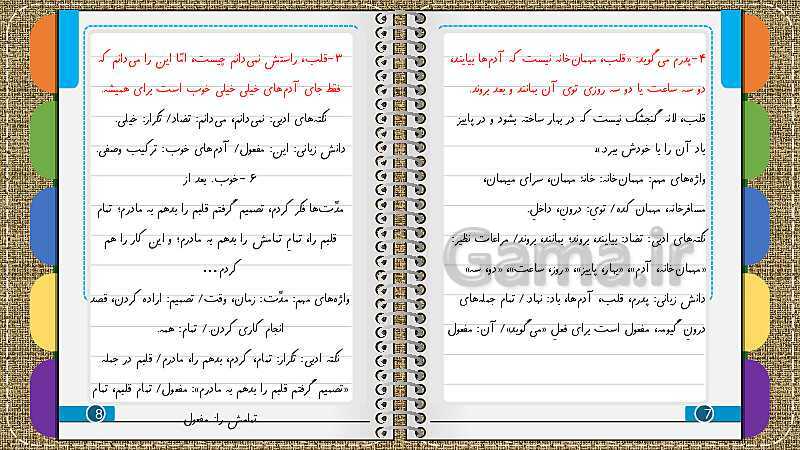 ۴-پدرم می‌گوید: «قلب، مهمان‌خانه نیست که آدم‌ها بیایند،
دو سه ساعت یا دو سه روزی توی آن بمانند و بعد بروند.
قلب، لانه گنجشک نیست که در بهار ساخته بشود و در پاییز
باد آن را با خودش ببرد.»
واژه‌های مهم: مهمان‌خانه: خانۀ مهمان، سرای میهمان،
مسافرخانه، مهمان کده/ توی: درونِ، داخلِ.
نکته‌های ادبی: تضاد: بیایند، بروند؛ بمانند، بروند/ مراعات نظیر:
«مهمان‌خانه، آدم»، «بهار، پاییز»، «روز، ساعت»، «دو، سه»
دانش زبانی: پدرم، قلب، آدم‌ها، باد: نهاد/ تمام جمله‌های
درونِ گیومه، مفعول است برای فعلِ «می‌گوید»/ آن: مفعول
7
۳-قلب، راستش نمی‌دانم چیست، امّا این را می‌دانم که
فقط جای آدم‌های خیلی خیلی خوب است برای همیشه.
نکته‌های ادبی: نمی‌دانم، می‌دانم: تضاد/ تکرار: خیلی.
دانش زبانی: این: مفعول/ آدم‌های خوب: ترکیب وصفی.
۶ -خوب. بعد از
مدّت‌ها فکر کردم، تصمیم گرفتم قلبم را بدهم به مادرم؛ تمام
قلبم را، تمامِ تمامش را بدهم به مادرم؛ و این کار را هم
کردم...
واژه‌های مهم: مدّت: زمان، وقت/ تصمیم: اراده کردن، قصد
انجام کاری کردن./ تمام: همه.
نکته ادبی: تکرار: تمام، کردم، بدهم را، مادرم/ قلبم در جمله
«تصمیم گرفتم قلبم را بدهم به مادرم»: مفعول/ تمام قلبم، تمام
تمامش را: مفعول
8
Gama.ir